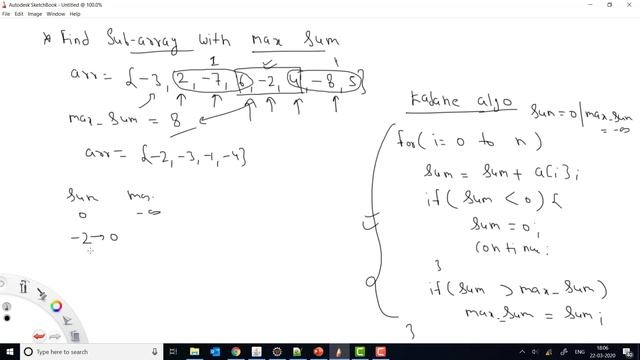 Autodesk SketchBook - Untitled @ 100.0%
File Edit Image Window Help
* Find Sub-array with max Sum
1 1
arr = {-3, 2, -7, 6, -2, 4, -8, 5}
max_sum = 8
arr = {-2, -3, -1, -4}
Sum max
0 -∞
-2→0
Kadane algo
Sum=0/max_sum
=-∞
for(i=0 to n)
Sum = Sum + a[i];
if(Sum < 0){
Sum = 0;
Continue;
}
if(Sum > max_Sum)
max_Sum = Sum;
}
Type here to search
ENG
18:06
22-03-2020